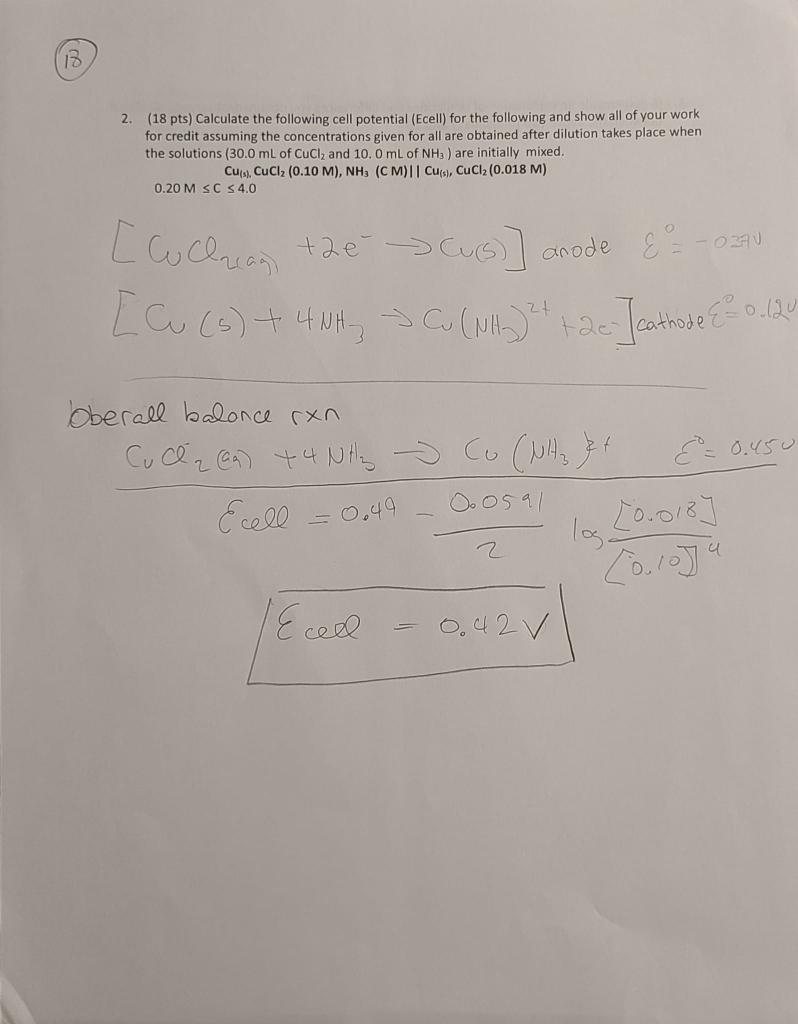 13
2. (18 pts) Calculate the following cell potential (Ecell) for the following and show all of your work
for credit assuming the concentrations given for all are obtained after dilution takes place when
the solutions (30.0 mL of CuCl₂ and 10. 0 mL of NH₃ ) are initially mixed.
Cu(s), CuCl₂ (0.10 M), NH₃ (C M)|| Cu(s), CuCl₂ (0.018 M)
0.20 M ≤C ≤ 4.0
[CuCl₂(aq) +2e⁻ → Cu(s)] anode ℰ° = -0.37V
[Cu (s) + 4NH₃ → Cu(NH₃)²⁺ +2e-] cathode ℰ° = 0.12V
Oberall balance rxn
CuCl₂ (aq) +4 NH₃ → Cu (NH₃)²⁺ ℰ° = 0.45V
Ecell = 0.49 - 0.0591/2 log [0.018]/[0.10]⁴
Ecell = 0.42V